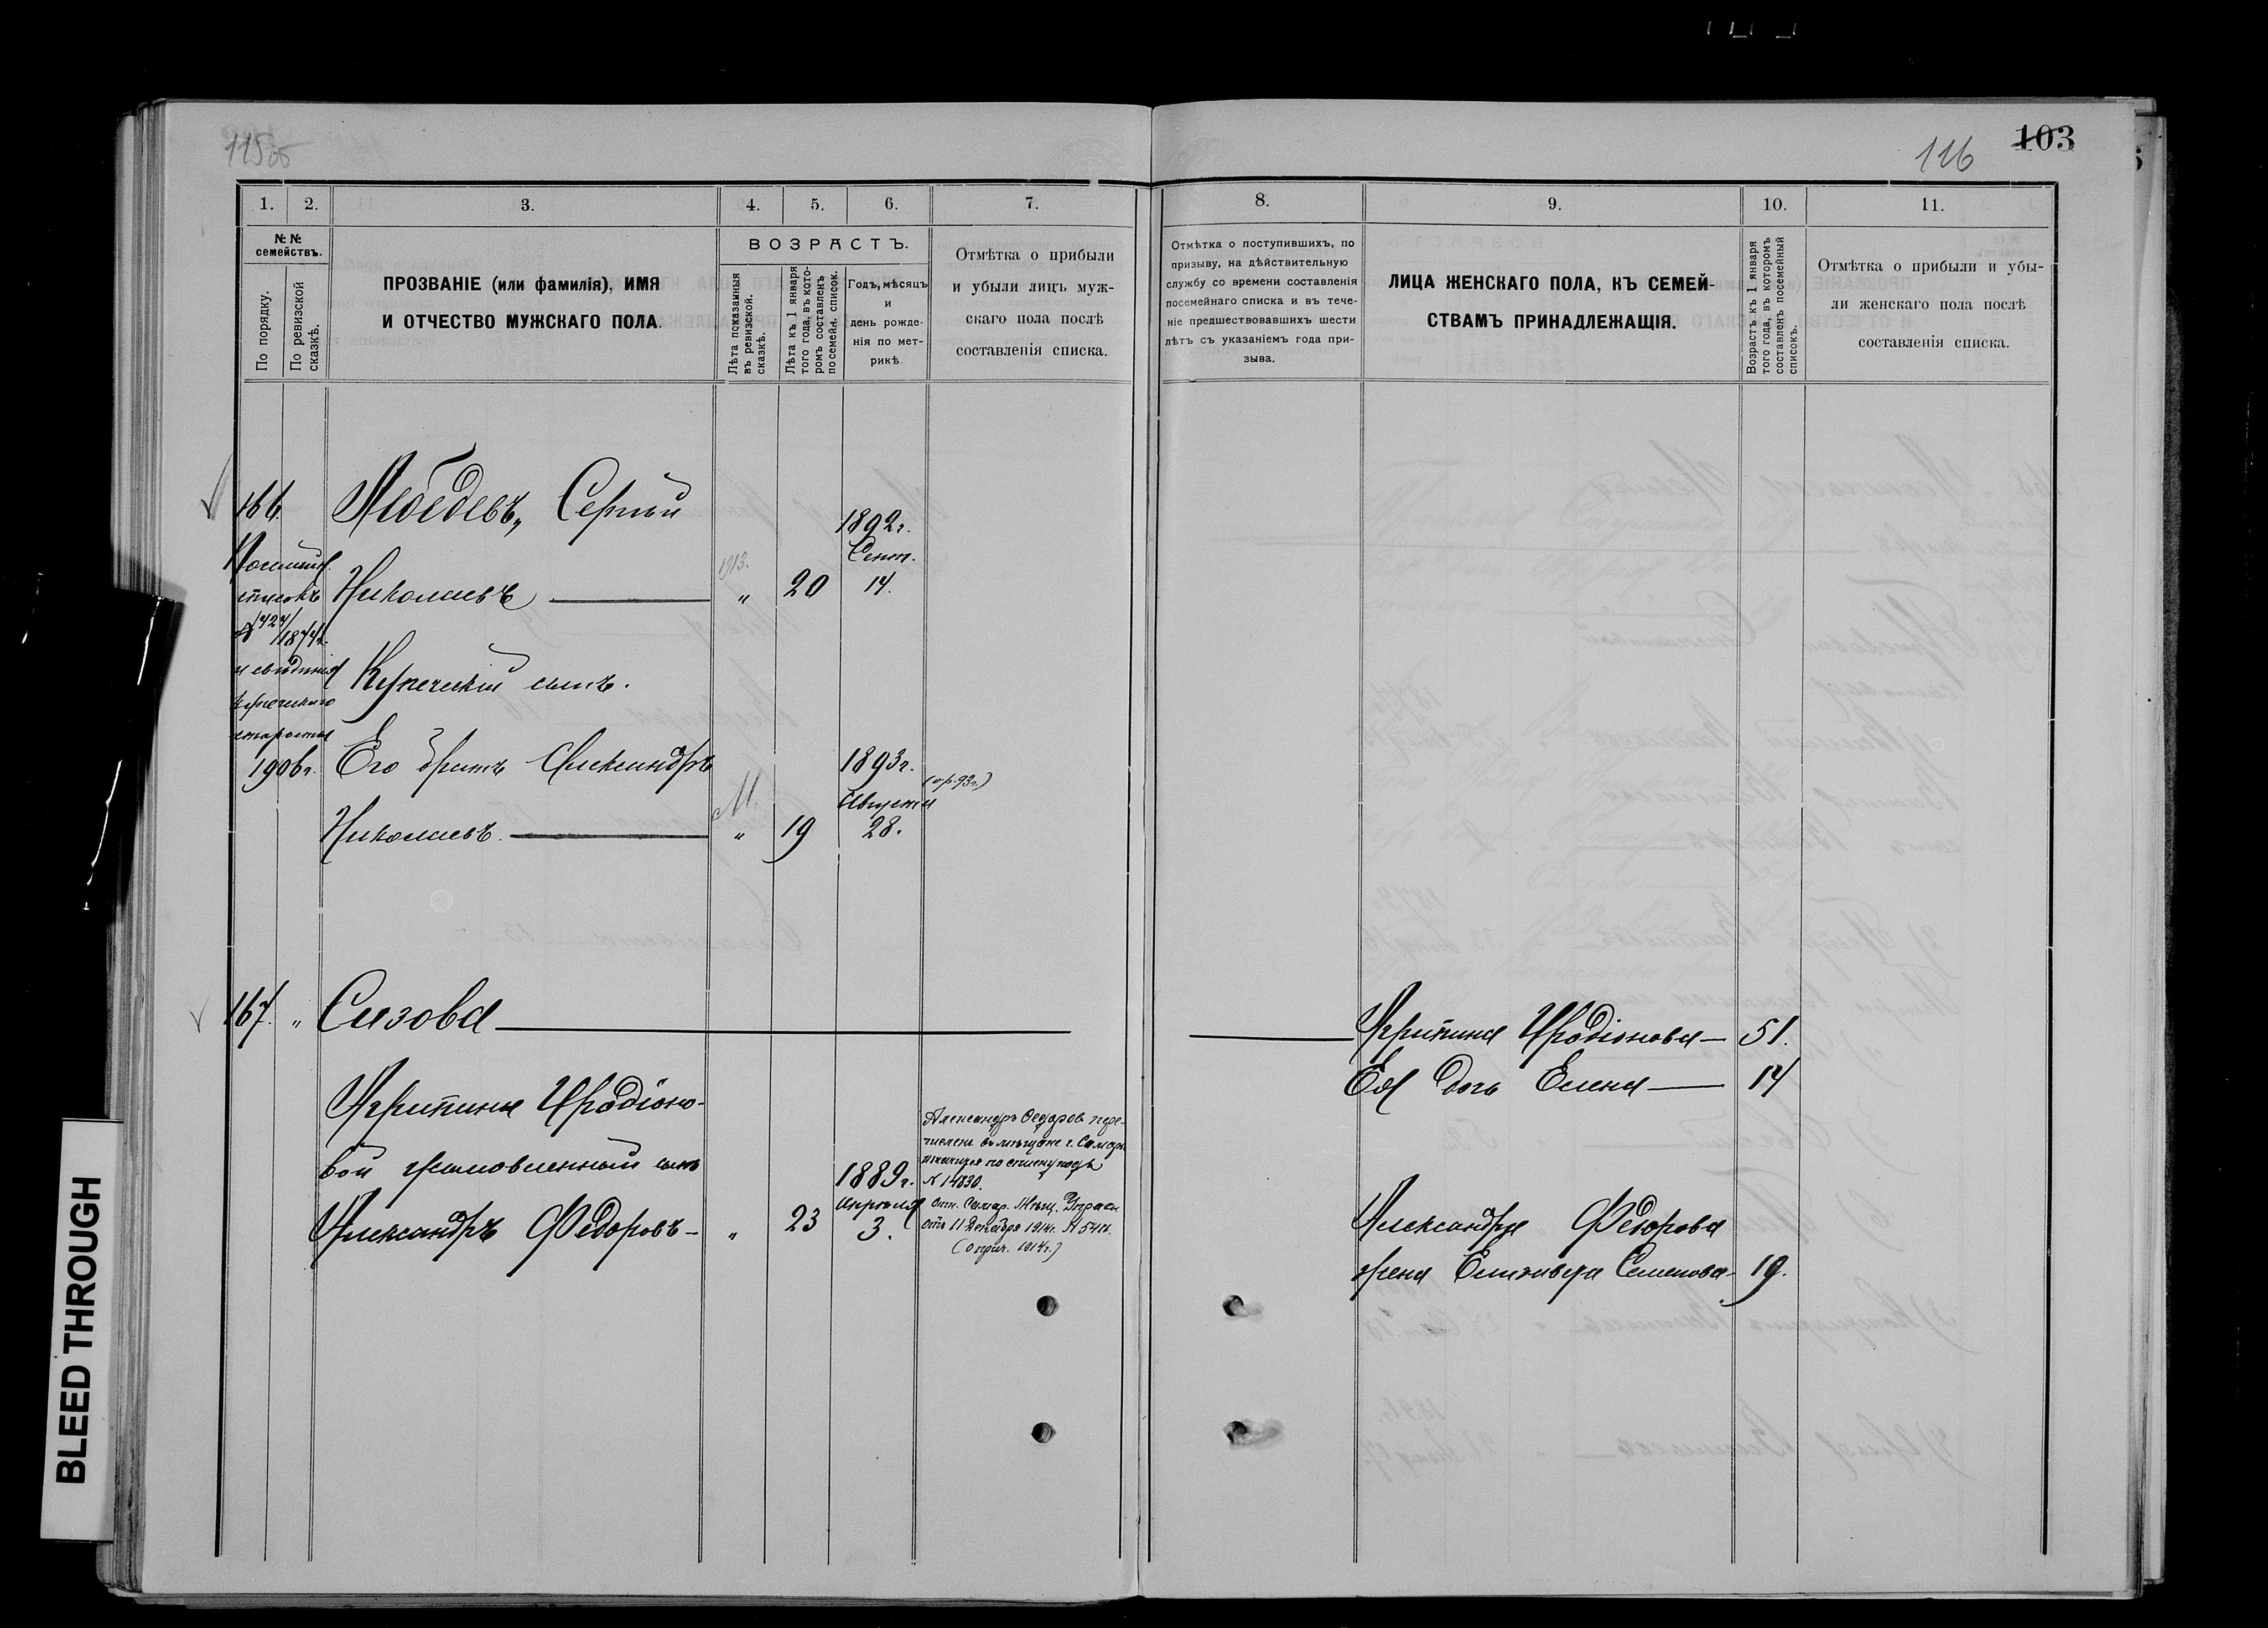 115об
116
103
1.
2.
3.
4.
5.
6.
7.
№ №
семействъ.
По порядку.
По ревизской
сказкѣ.
ПРОЗВАНІЕ (или фамилія), ИМЯ
И ОТЧЕСТВО МУЖСКАГО ПОЛА.
ВОЗРАСТЪ.
Лѣта показанныя
въ ревизской.
сказкѣ.
Лѣта къ 1 января
того года, въ кото-
ромъ составленъ
посемейн. список.
Годъ, мѣсяцъ
и
день рожде-
нія по мет-
рикѣ.
Отмѣтка о прибыли
и убыли лицъ муж-
скаго пола послѣ
составленія списка.
8.
9.
10.
11.
Отмѣтка о поступившихъ, по
призыву, на дѣйствительную
службу со времени составленія
посемейнаго списка и въ тече-
ніе предшествовавшихъ шести
лѣтъ съ указаніемъ года при-
зыва.
ЛИЦА ЖЕНСКАГО ПОЛА, КЪ СЕМЕЙ-
СТВАМЪ ПРИНАДЛЕЖАЩІЯ.
Возрастъ къ 1 января
того года, въ которомъ
составленъ посемейный
списокъ.
Отмѣтка о прибыли и убы-
ли женскаго пола послѣ
составленія списка.
166.
Лебедевъ, Сергѣй
1892г.
Сент.
14.
Николаевъ
1913.
"
20
списокъ
и свѣдѣнія
купеческаго
старосты
1906г.
Купеческій сынъ.
Его братъ Александръ
1893г.
(о р. 93г.)
Августа
28.
Николаевъ.
М.
"
19
167. " Сизова
Агрипина Иродіонова 51.
Ея дочь Елена 14
Агрипины Иродіоно-
вой усыновленный сынъ
Александръ Ѳедоровъ - " 23
1889г.
Апрѣля
3.
Александръ Ѳедоров. пере-
численъ въ мѣщане г. Самары
по списку подъ
№ 14830.
Отн. Самар. Мѣщ. Управы
отъ 11 Декабря 1914г.
Александра Ѳедорова
жена Елизавета Семенова 19.
BLEED THROUGH